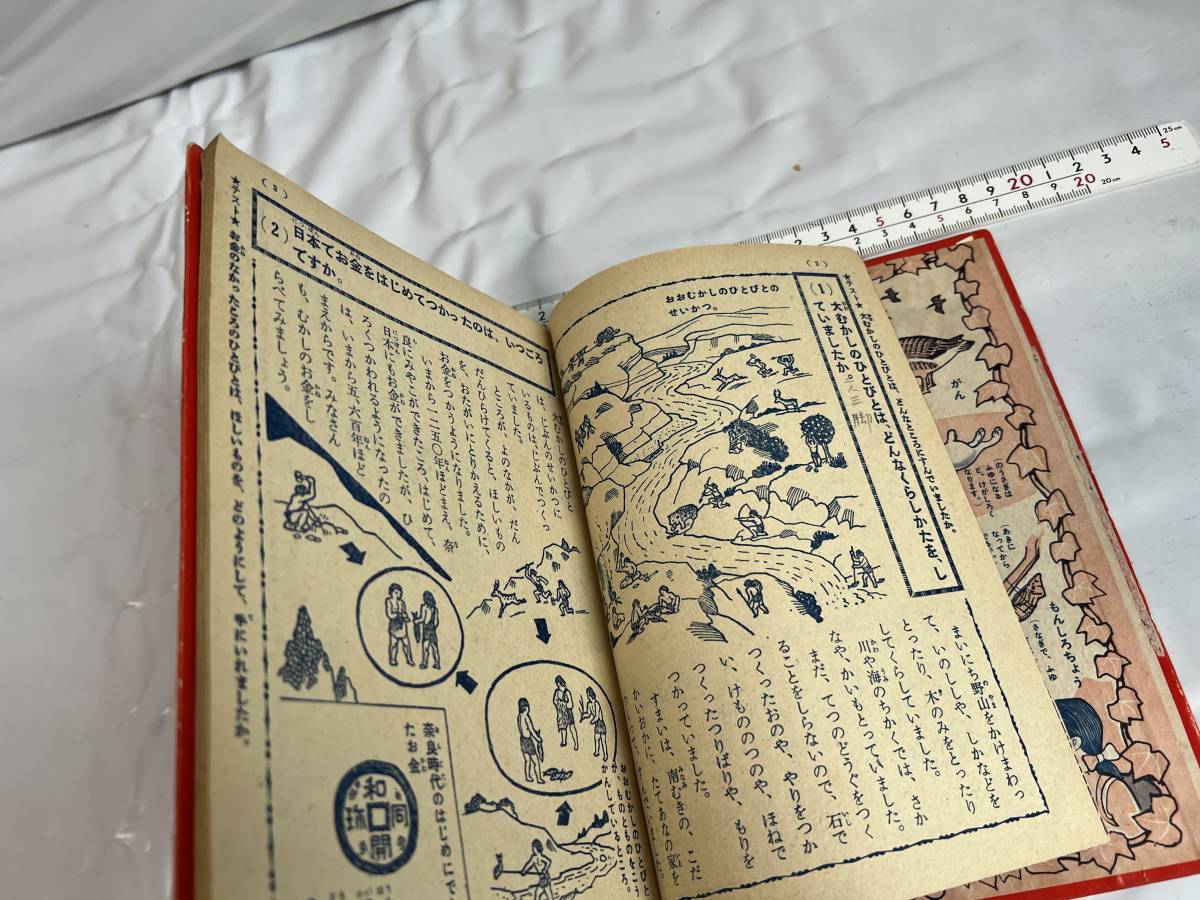 (2)
★テスト★ 大むかしのひとびとは、どんなところにすんでいましたか。
(1) 大むかしのひとびとは、どんなくらしかたを、し
ていましたか。
おおむかしのひとびとの
せいかつ。
まいにち野山をかけまわっ
て、いのししや、しかなどを
とったり、木のみをとったり
してくらしていました。
川や海のちかくでは、さか
なや、かいもとっていました。
まだ、てつのどうぐをつく
ることをしらないので、石で
つくったおのや、やりをつか
い、けもののつのや、ほねで
つくったつりばりや、もりを
つかっていました。
すまいは、南むきの、こだ
かいおかに、たてあなの家を
(3)
(2) 日本でお金をはじめてつかったのは、いつごろ
ですか。
大むかしのひとびと
は、じぶんのせいかつに
ているものは、じぶんでつくっ
ていました。
ところが、よのなかが、だん
だんひらけてくると、ほしいもの
を、おたがいにとりかえるために、
お金をつかうようになりました。
いまから一二五〇年ほどまえ、奈
良にみやこができたころ、はじめて、
日本にもお金ができましたが、ひ
ろくつかわれるようになったの
は、いまから五、六百年ほど
まえからです。みなさん
も、むかしのお金をし
らべてみましょう。
おおむかしのひとびと
が、ものとものをこう
かんしているところ。
奈良時代のはじめにで
たお金
和同開珎
★テスト★ お金のなかったころのひとびとは、ほしいものを、どのようにして、手にいれましたか。
がん
(のうさぎは
ふゆになる
と、けがしろく
なります。)
(あきに
なってから
もんしろちょう
(さなぎで、ふゆ
5 6 7 8 9 20 1 2 3 4 5
25cm
5 6 7 8 9 20
20cm